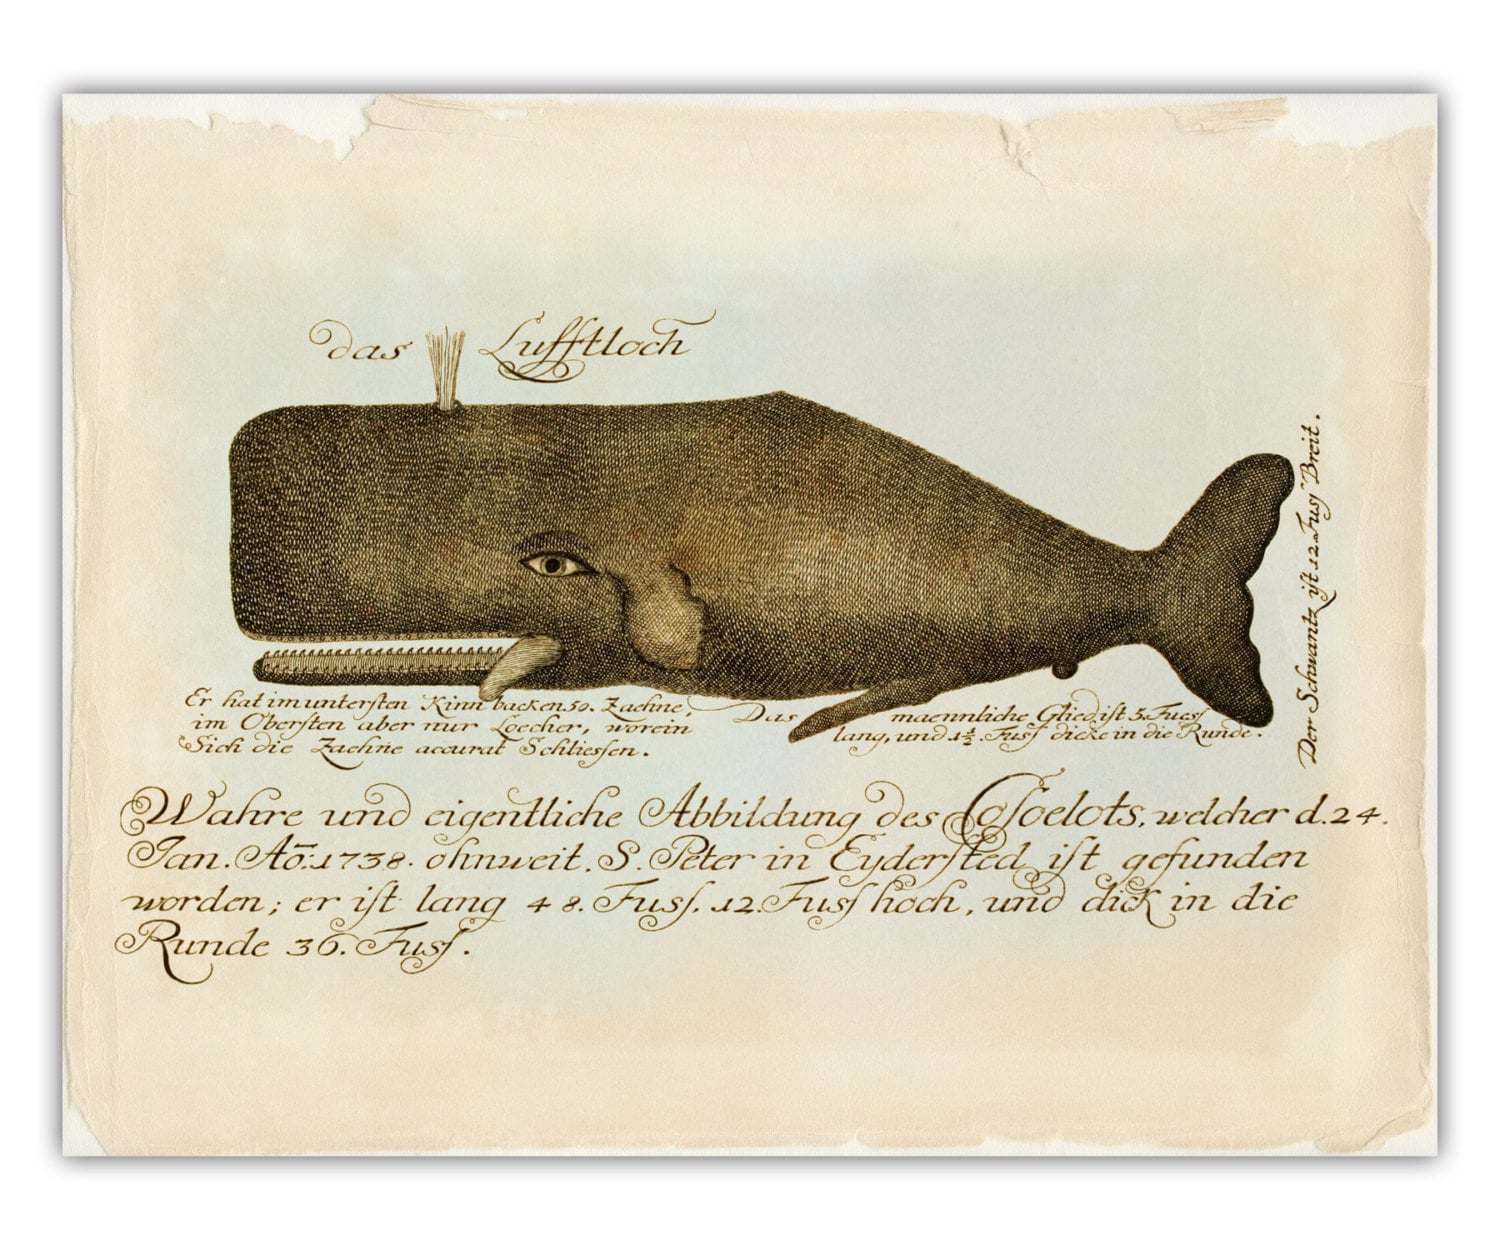 das Lufftloch
Er hat im untersten Kinn backen 50. Zaehne,
im Obersten aber nur Loecher, worein
Sich die Zaehne accurat Schliessen.
Das maennliche Glied ist 5. Fuess
lang, und 1½. Fuss dicke in die Runde.
Der Schwantz ist 12. Fuss Breit.
Wahre und eigentliche Abbildung des welcher d. 24.
Jan. Aō: 1738. ohnweit. S. Peter in Eydersted ist gefunden
worden; er ist lang 48. Fuss. 12. Fuss hoch, und dick in die
Runde 36. Fuss.